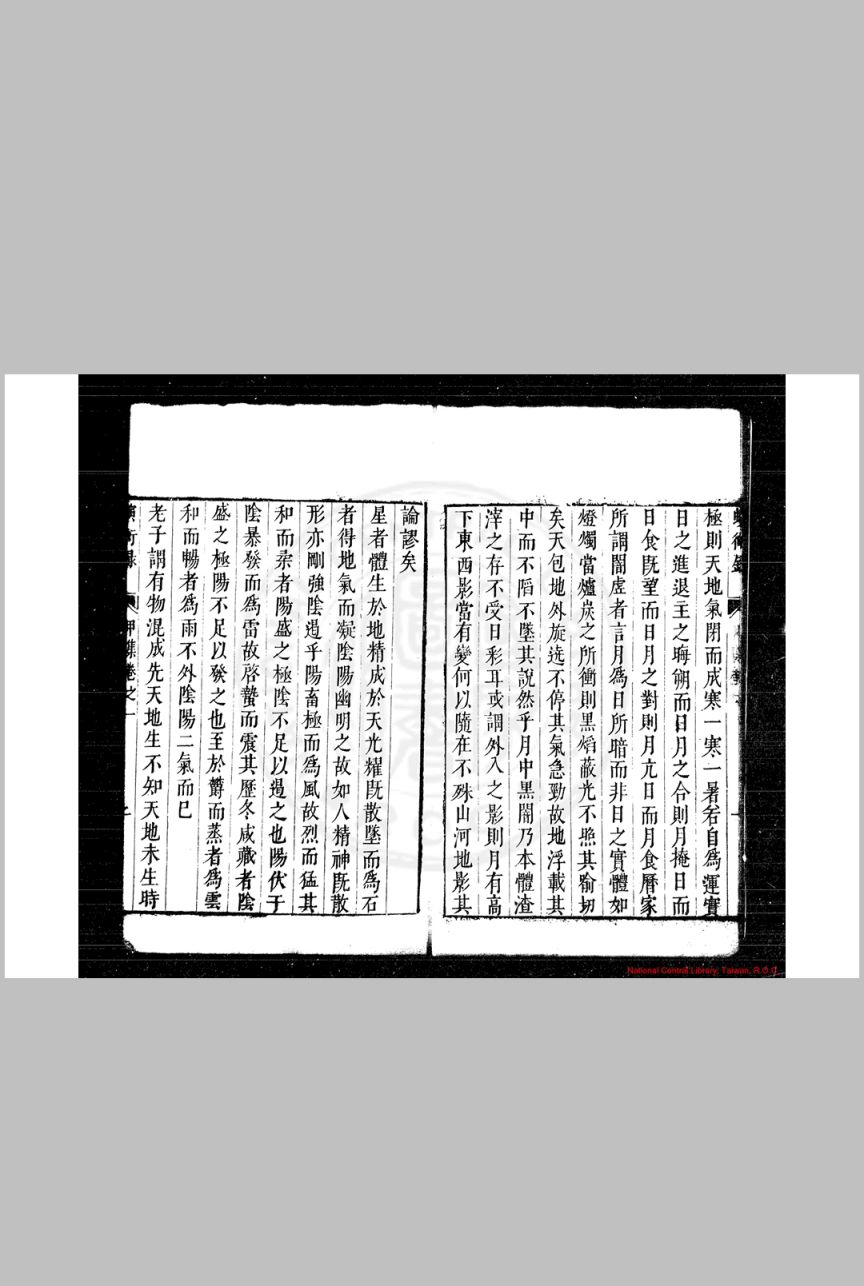 極則天地氣閉而成寒一寒一暑若自爲運實
日之進退主之晦朔而日月之合則月掩日而
日食既望而日月之對則月亢日而月食曆家
所謂闇虛者言月爲日所暗而非日之實體如
燈燭當爐炭之所衝則黑熖蔽光不照其喻切
矣天包地外旋迄不停其氣急勁故地浮載其
中而不陷不墜其說然乎月中黑闇乃本體渣
滓之存不受日彩耳或謂外入之影則月有高
下東西影當有變何以隨在不殊山河地影其
論謬矣
星者體生於地精成於天光耀既散墜而爲石
者得地氣而凝陰陽幽明之故如人精神既散
形亦剛強陰遏乎陽畜極而爲風故烈而猛其
和而柔者陽盛之極陰不足以遏之也陽伏于
陰暴發而爲雷故啓蟄而震其歷冬咸藏者陰
盛之極陽不足以發之也至於欝而蒸者爲雲
和而暢者爲雨不外陰陽二氣而已
老子謂有物混成先天地生不知天地未生時
甲集卷之一
National Central Library, Taiwan, R.O.C.